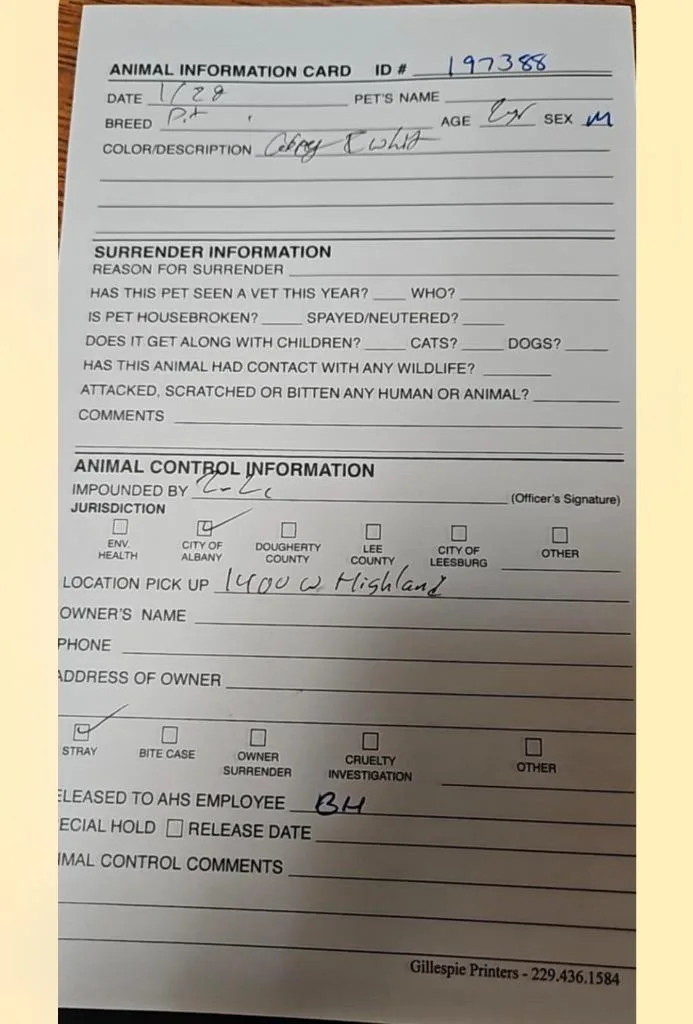 ANIMAL INFORMATION CARD ID # 197388
DATE 1/28 PET'S NAME
BREED Pit AGE 2yr SEX M
COLOR/DESCRIPTION & whit
SURRENDER INFORMATION
REASON FOR SURRENDER
HAS THIS PET SEEN A VET THIS YEAR? WHO?
IS PET HOUSEBROKEN? SPAYED/NEUTERED?
DOES IT GET ALONG WITH CHILDREN? CATS? DOGS?
HAS THIS ANIMAL HAD CONTACT WITH ANY WILDLIFE?
ATTACKED, SCRATCHED OR BITTEN ANY HUMAN OR ANIMAL?
COMMENTS
ANIMAL CONTROL INFORMATION
IMPOUNDED BY (Officer's Signature)
JURISDICTION
ENV. HEALTH CITY OF ALBANY DOUGHERTY COUNTY LEE COUNTY CITY OF LEESBURG OTHER
LOCATION PICK UP 1400 W Highland
OWNER'S NAME
PHONE
ADDRESS OF OWNER
STRAY BITE CASE OWNER SURRENDER CRUELTY INVESTIGATION OTHER
ELEASED TO AHS EMPLOYEE BH
ECIAL HOLD RELEASE DATE
IMAL CONTROL COMMENTS
Gillespie Printers - 229.436.1584